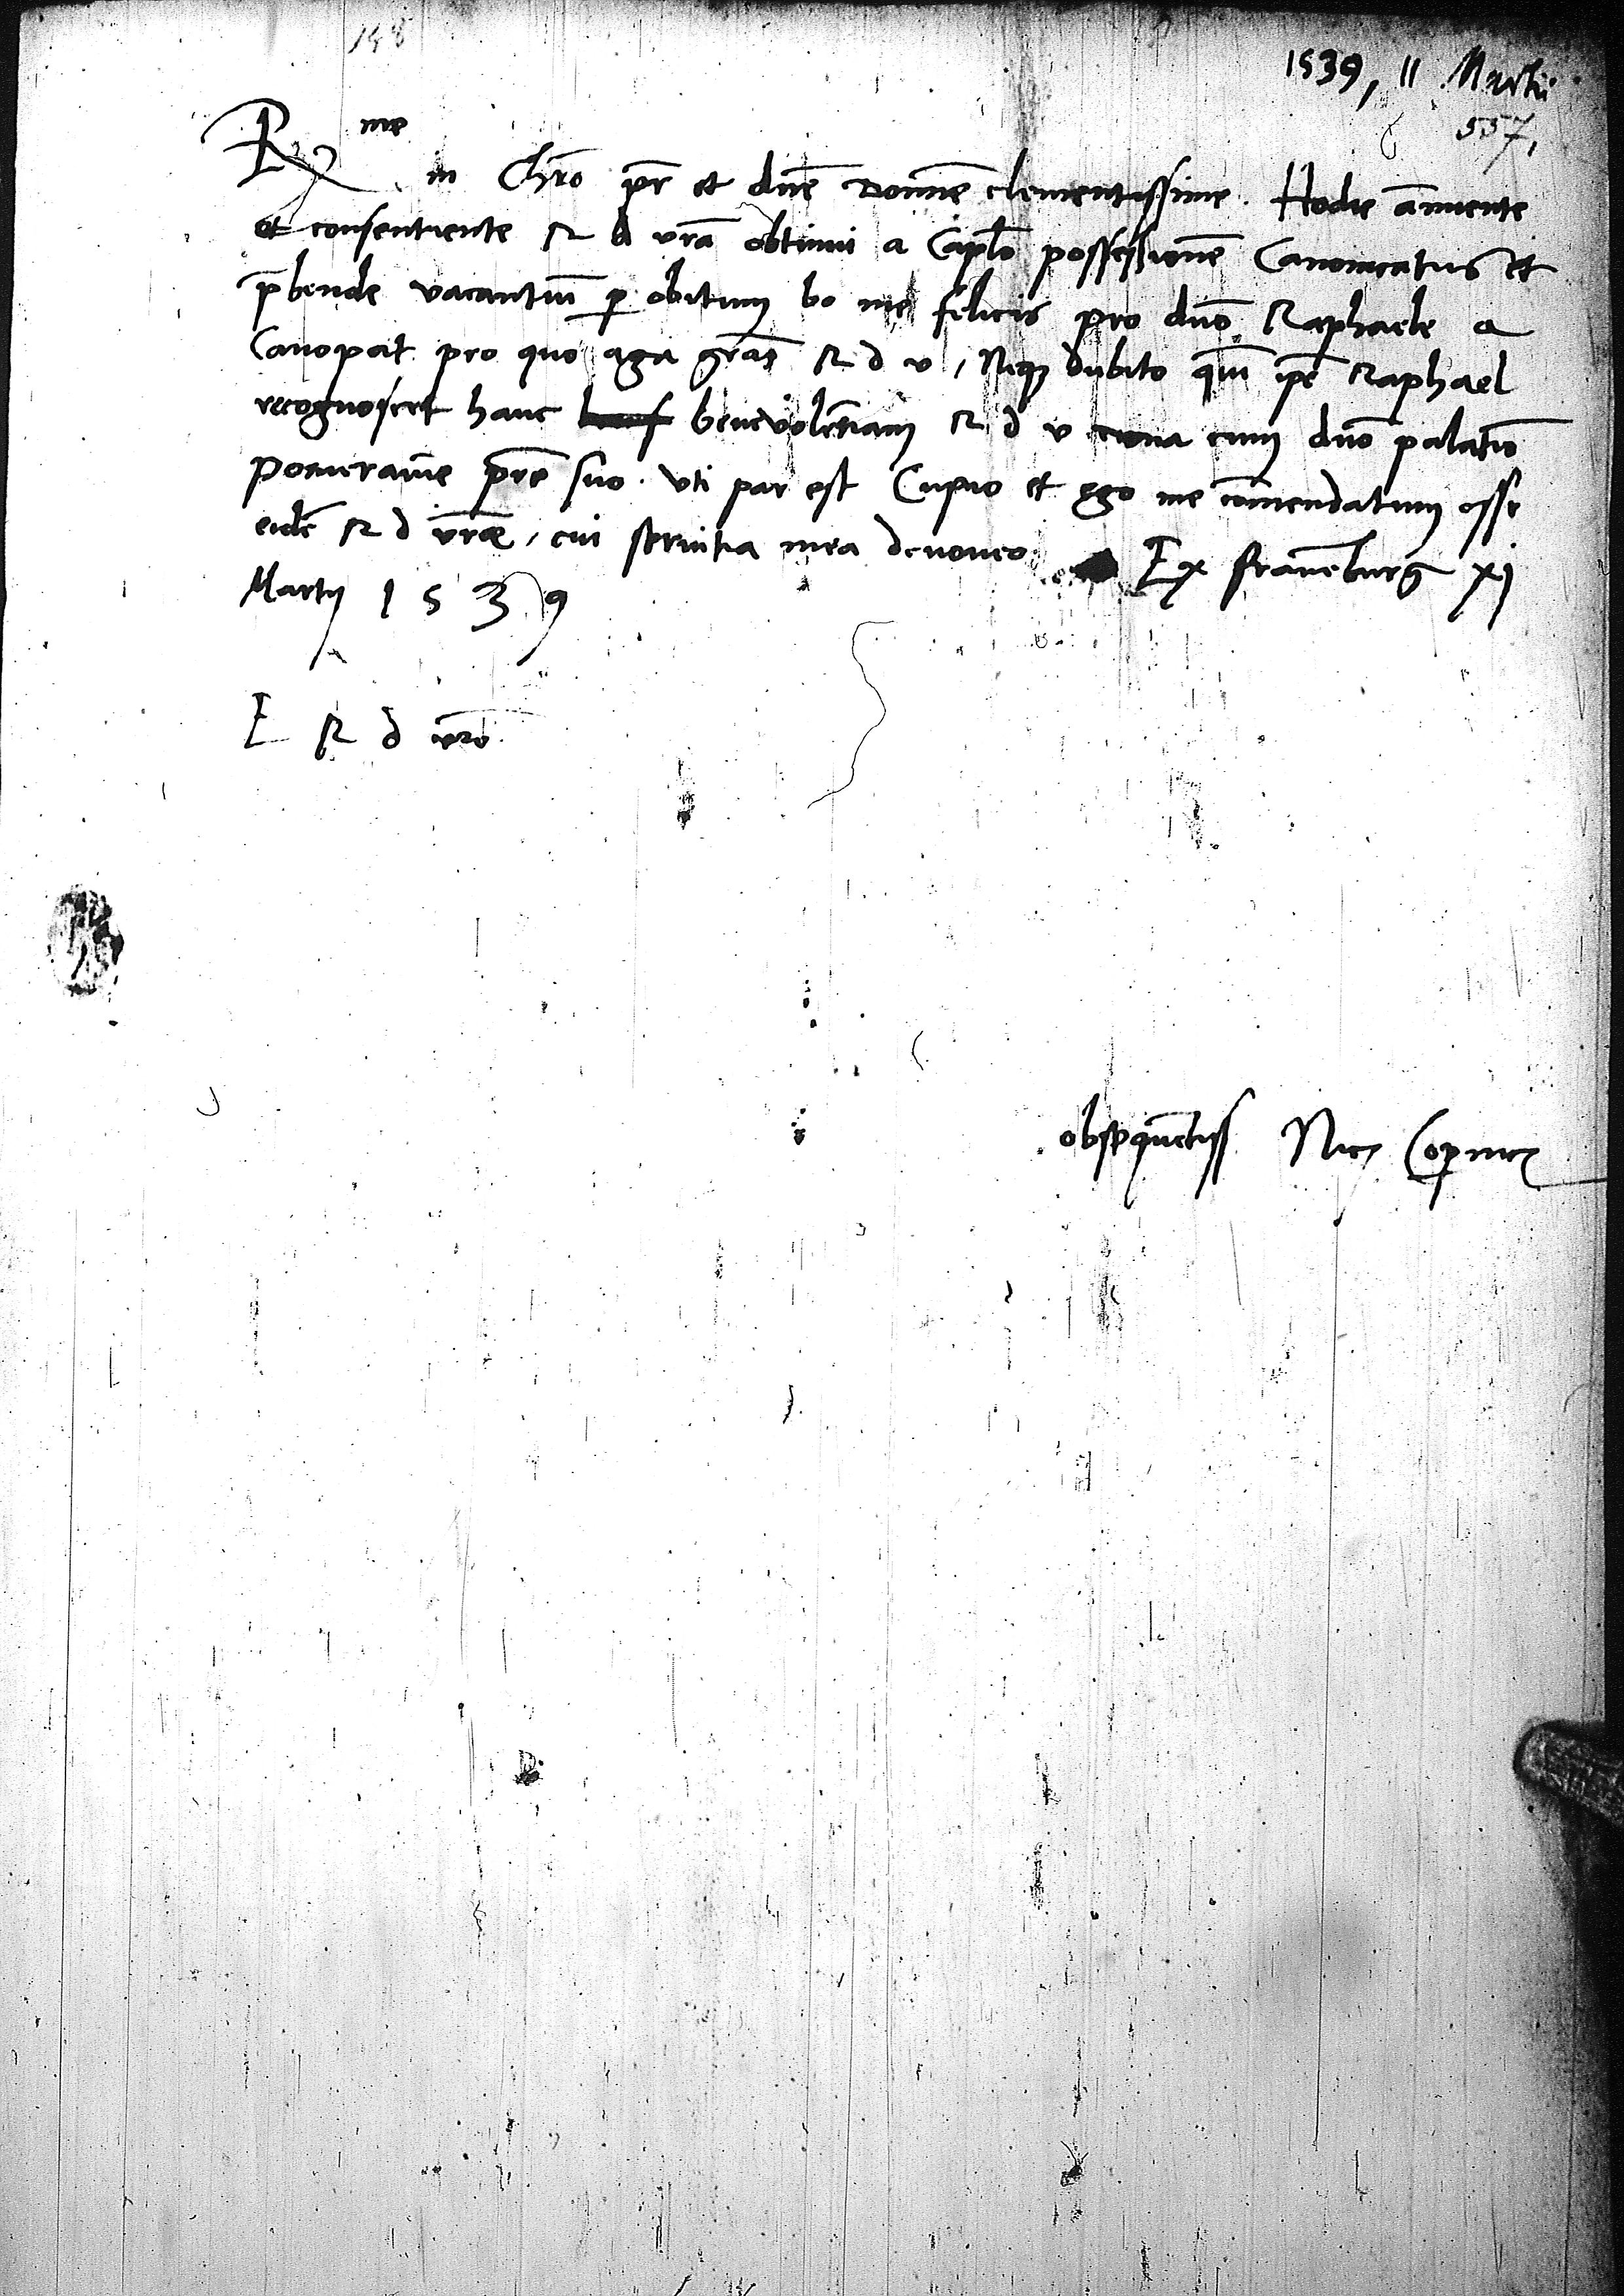 148
1539, 11 Martii
557,
R me in Chro pr et dne domne clementissime. Hodie annuente
et consentiente R d vra obtinui a Caplo possessionem Canonicatus et
prebende vacantium p obitum bo me felicis pro dno Raphaele a
Canopat pro quo aga gras R d v, Neq dubito quin ipe Raphael
recognoscet hanc benevoletiam R d v una cum dno palatio
pomeranie pre suo. Vti par est Cupio et ego me comendatum esse
eide R d vrae, cui servitia mea devoveo Ex fraueburg xj
Martij 1539
E R d vre
obsequetiss Nic Copnic